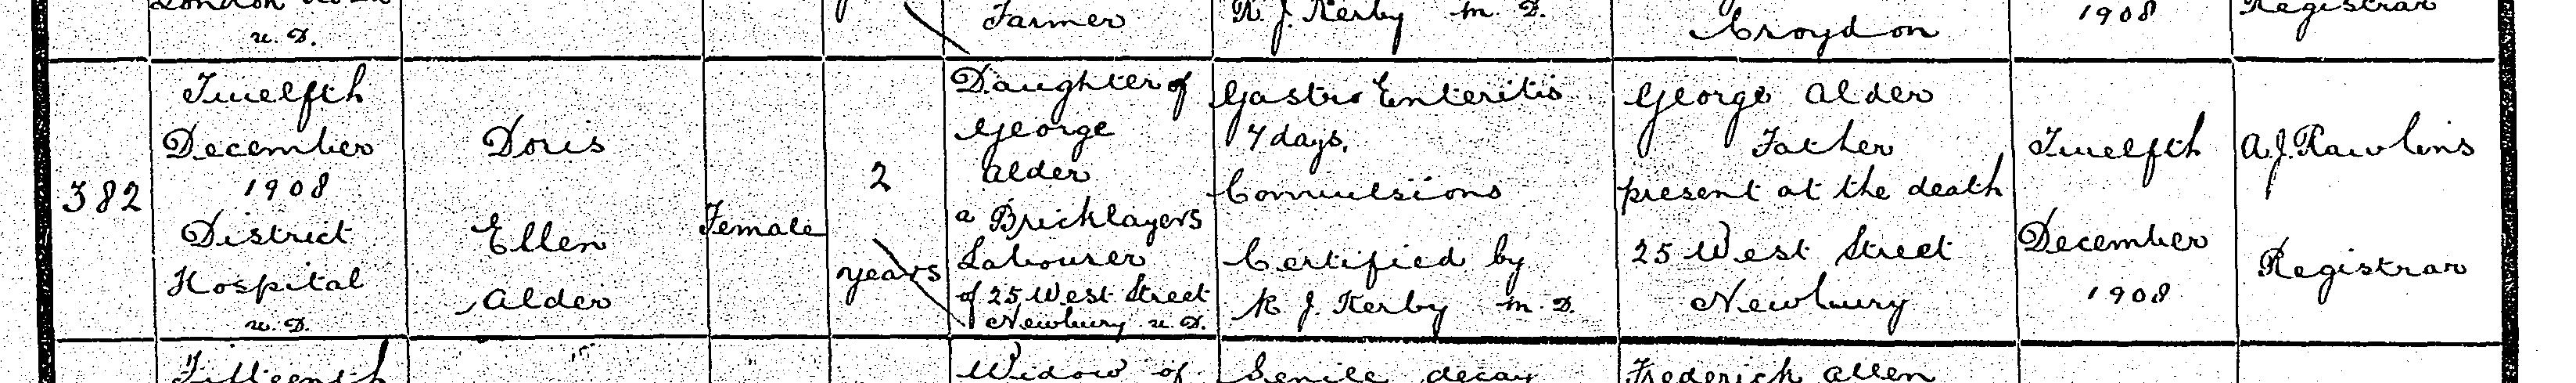 London Road
u. D.
Farmer
R. J. Kerby m. D.
Croydon
1908
Registrar
382
Twelfth
December
1908
District
Hospital
u. D.
Doris
Ellen
Alder
Female
2
years
Daughter of
George
Alder
a Bricklayers
Labourer
of 25 West Street
Newbury u. D.
Gastro Enteritis
7 days.
Convulsions
Certified by
R. J. Kerby m. D.
George Alder
Father
present at the death
25 West Street
Newbury
Twelfth
December
1908
A. J. Rawlins
Registrar
Fifteenth
Widow of
Senile decay
Frederick Allen